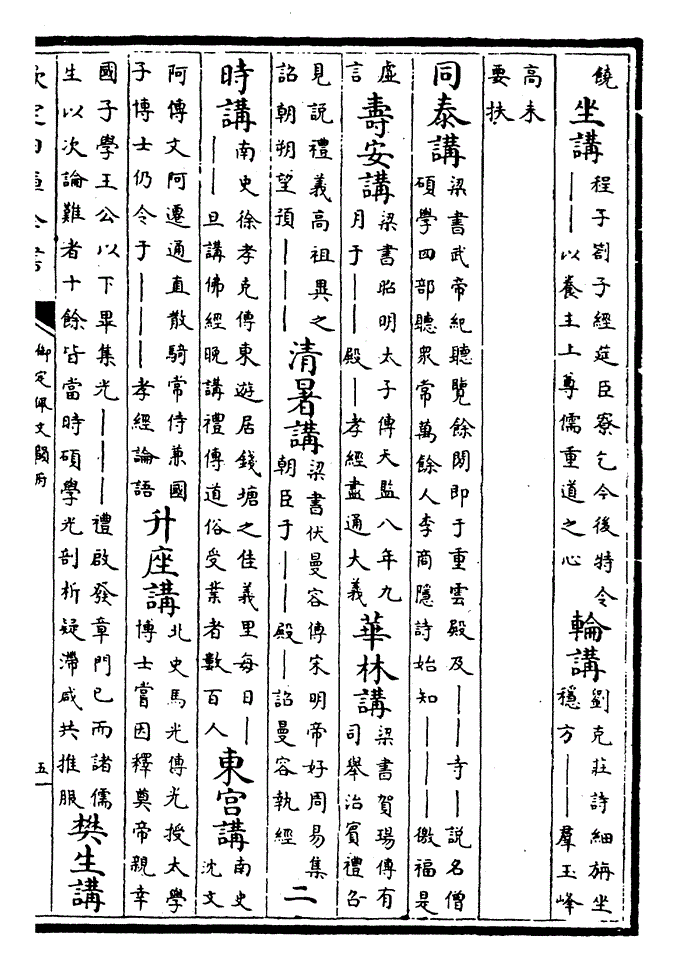 饒
坐講
程子劄子經筵臣寮乞今後特令
——以養主上尊儒重道之心
輪講
劉克莊詩細旃坐
穩方——羣玉峰
高未
要扶
同泰講
梁書武帝紀聽覽餘閒即于重雲殿及——寺—說名僧
碩學四部聽衆常萬餘人李商隱詩始知———徼福是
虛
言
壽安講
梁書昭明太子傳天監八年九
月于——殿—孝經盡通大義
華林講
梁書賀瑒傳有
司舉治賓禮召
見說禮義高祖異之
詔朝朔望預———
清暑講
梁書伏曼容傳宋明帝好周易集
朝臣于——殿—詔曼容執經
二
時講
南史徐孝克傳東遊居錢塘之佳義里每日—
——旦講佛經晚講禮傳道俗受業者數百人
東宫講
南史
沈文
阿傳文阿遷通直散騎常侍兼國
子博士仍令于———孝經論語
升座講
北史馬光傳光授太學
博士嘗因釋奠帝親幸
國子學王公以下畢集光———禮啟發章門已而諸儒
生以次論難者十餘皆當時碩學光剖析疑滯咸共推服
樊生講
欽定四庫全書
御定佩文韻府
五